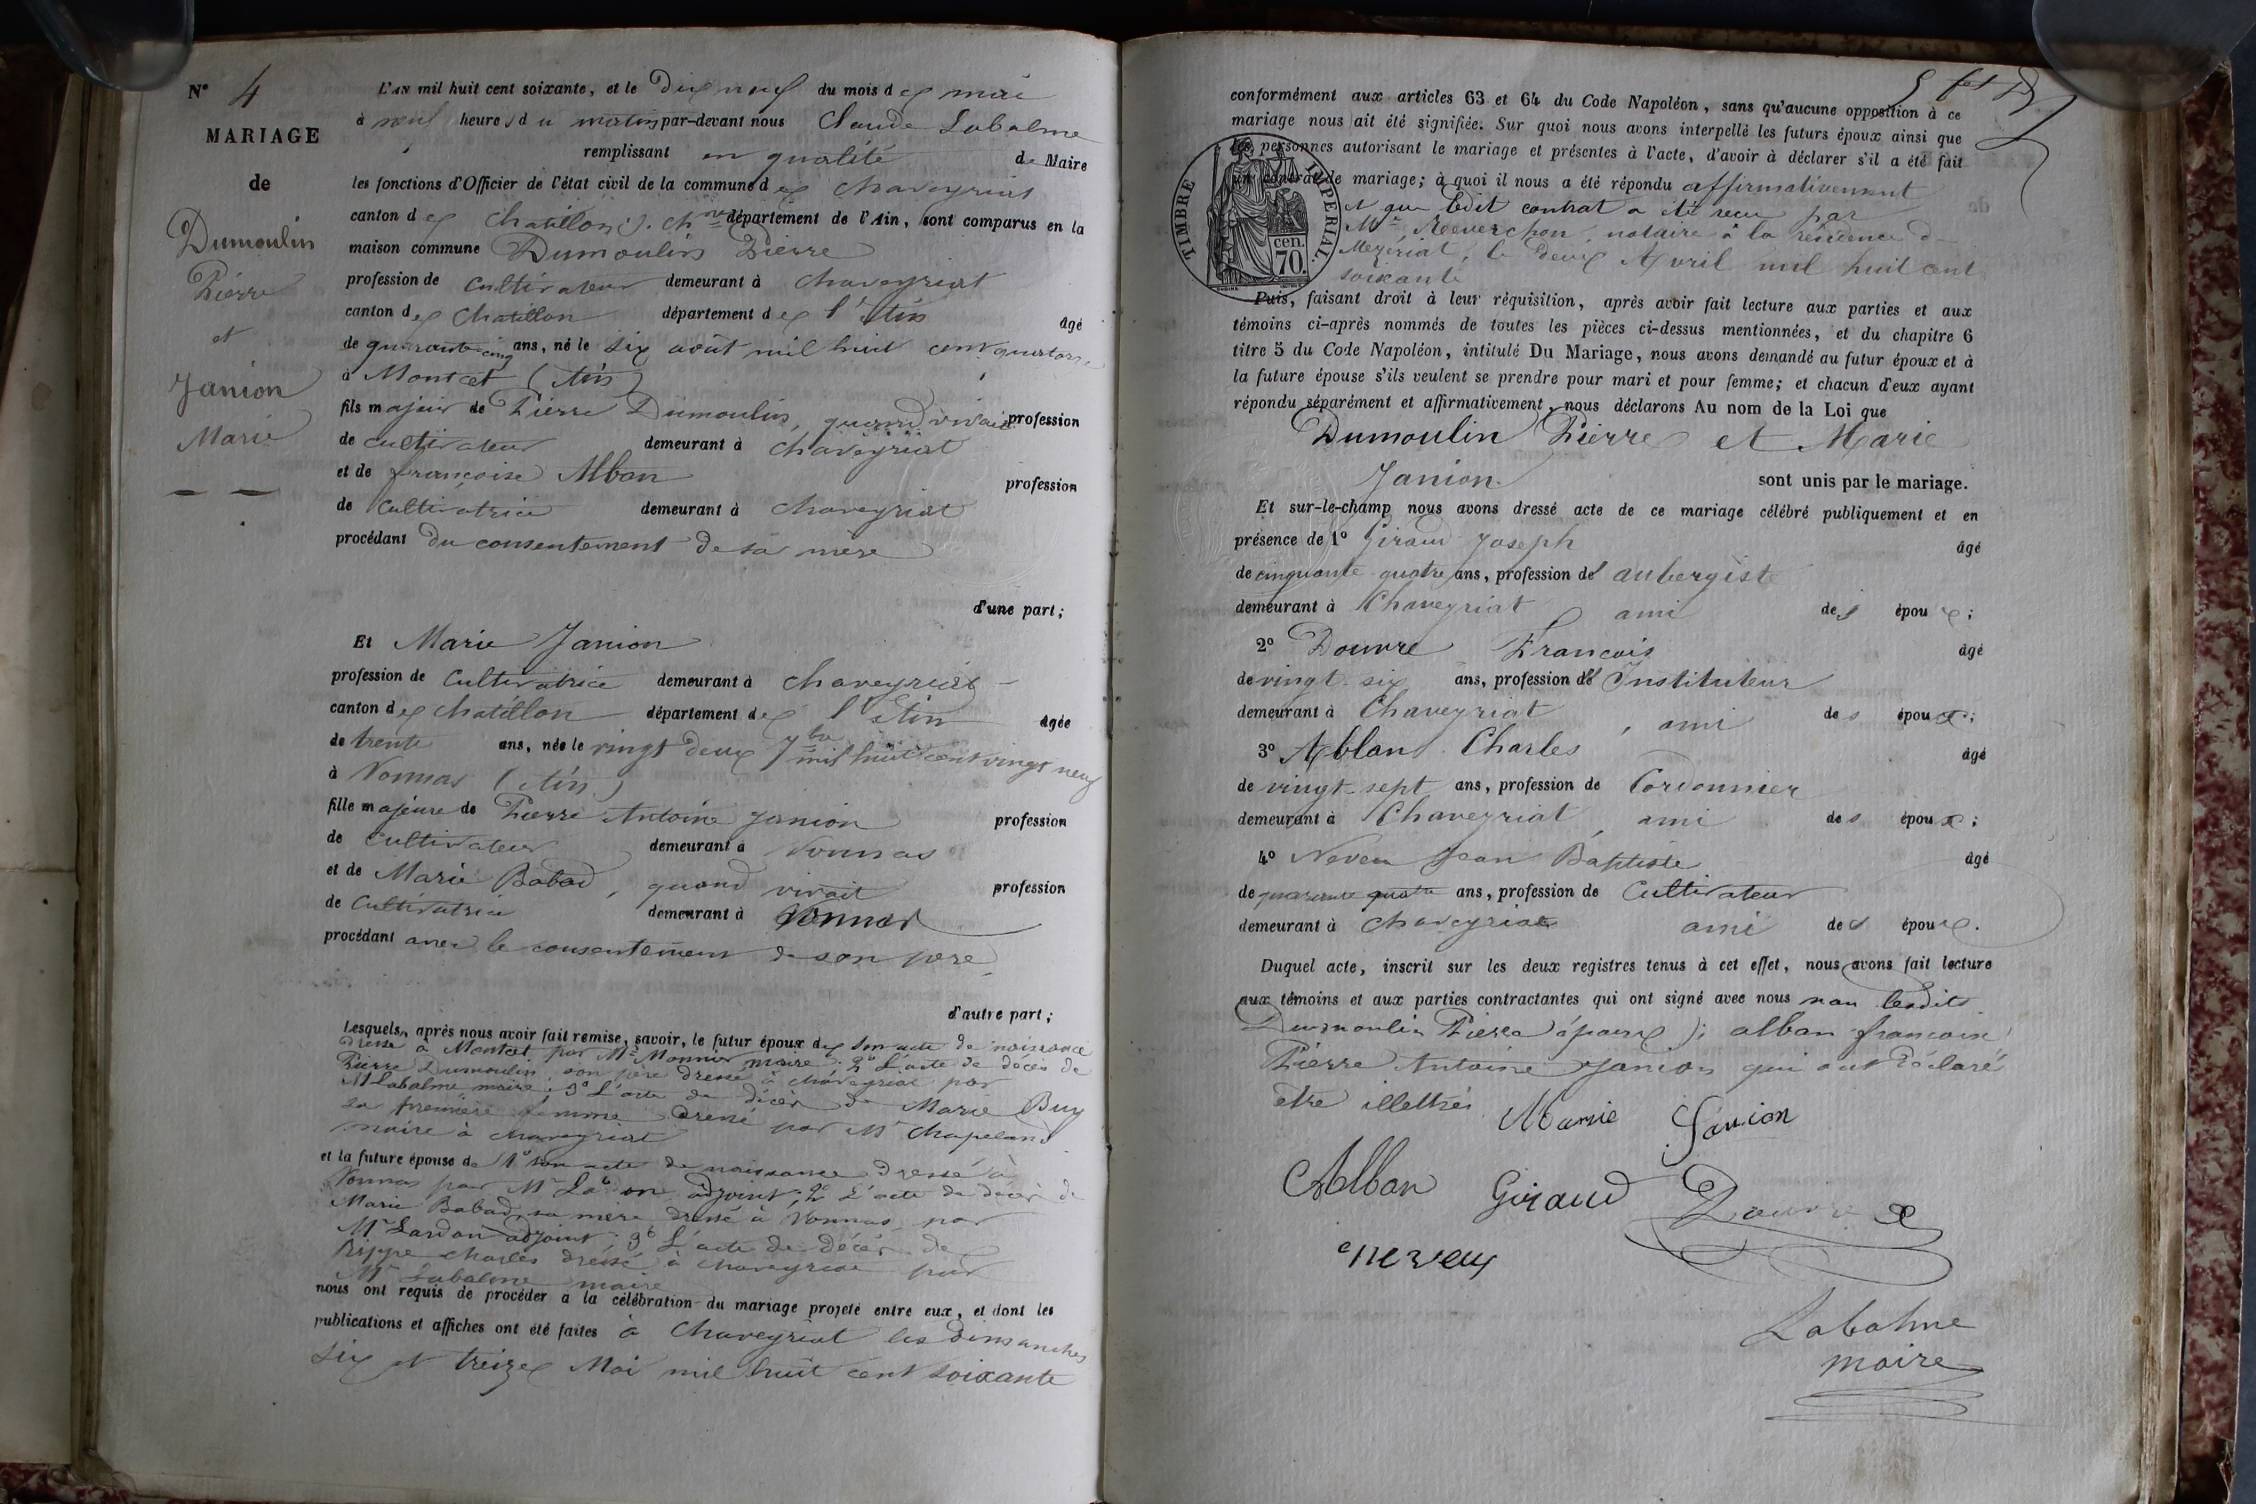 N° 4
MARIAGE
de
Dumoulin
Pierre
et
Janion
Marie
L'AN mil huit cent soixante, et le Dix neuf du mois de mai
à neuf heures du matin par-devant nous Claude Labalme
remplissant en qualité de Maire
les fonctions d'Officier de l'état civil de la commune de Chaveyriat
canton de Chatillon s. Ch.ne département de l'Ain, sont comparus en la
maison commune Dumoulin Pierre
profession de cultivateur demeurant à Chaveyriat
canton de Chatillon département de l'Ain âgé
de quarante cinq ans, né le six août mil huit cent quatorze
à Montcet (Ain)
fils majeur de Pierre Dumoulin, quand vivait profession
de cultivateur demeurant à Chaveyriat
et de françoise Alban profession
de cultivatrice demeurant à Chaveyriat
procédant du consentement de sa mère
d'une part;
Et Marie Janion
profession de Cultivatrice demeurant à Chaveyriat
canton de Chatillon département de l'Ain âgée
de trente ans, née le vingt deux 7bre mil huit cent vingt neuf
à Vonnas (Ain)
fille majeure de Pierre Antoine Janion profession
de cultivateur demeurant à Vonnas
et de Marie Babad, quand vivait profession
de Cultivatrice demeurant à Vonnas
procédant avec le consentement de son père
d'autre part;
Lesquels, après nous avoir fait remise, savoir, le futur époux de son acte de naissance
dressé à Montcet par Mr Monnier maire. 2° L'acte de décès de
Pierre Dumoulin son père dressé à Chaveyriat par
M Labalme maire; 3° L'acte de décès de Marie Buy
sa première femme dressé par Mr Chapeland
maire à Chaveyriat
et la future épouse de 1° son acte de naissance dressé à
Vonnas par Mr adjoint; 2° L'acte de décès de
Marie Babad, sa mère dressé à Vonnas, par
Mr Lardon adjoint. 3° L'acte de décès de
Rippe Charles dressé à Chaveyriat par
Mr Labalme maire
nous ont requis de procéder à la célébration du mariage projeté entre eux, et dont les
publications et affiches ont été faites à Chaveyriat les dimanches
six et treize Mai mil huit cent soixante
conformément aux articles 63 et 64 du Code Napoléon, sans qu'aucune opposition à ce
mariage nous ait été signifiée. Sur quoi nous avons interpellé les futurs époux ainsi que
les personnes autorisant le mariage et présentes à l'acte, d'avoir à déclarer s'il a été fait
un contrat de mariage; à quoi il nous a été répondu affirmativement
et que ledit contrat a été reçu par
Me Reverchon, notaire à la résidence de
Mézériat, le deux Avril mil huit cent
soixante
TIMBRE IMPERIAL.
cen.
70.
Puis, faisant droit à leur réquisition, après avoir fait lecture aux parties et aux
témoins ci-après nommés de toutes les pièces ci-dessus mentionnées, et du chapitre 6
titre 5 du Code Napoléon, intitulé Du Mariage, nous avons demandé au futur époux et à
la future épouse s'ils veulent se prendre pour mari et pour femme; et chacun d'eux ayant
répondu séparément et affirmativement, nous déclarons Au nom de la Loi que
Dumoulin Pierre et Marie
Janion sont unis par le mariage.
Et sur-le-champ nous avons dressé acte de ce mariage célébré publiquement et en
présence de 1° Giraud Joseph âgé
de cinquante quatre ans, profession d' aubergiste
demeurant à Chaveyriat ami des époux;
2° Douvre François âgé
de vingt-six ans, profession d' Instituteur
demeurant à Chaveyriat, ami des époux;
3° Ablan Charles âgé
de vingt-sept ans, profession de Cordonnier
demeurant à Chaveyriat, ami des époux;
4° Neveu Jean Baptiste âgé
de quarante quatre ans, profession de Cultivateur
demeurant à Chaveyriat ami des époux.
Duquel acte, inscrit sur les deux registres tenus à cet effet, nous avons fait lecture
aux témoins et aux parties contractantes qui ont signé avec nous non lesdits
Dumoulin Pierre (époux); alban françoise
Pierre Antoine Janion qui ont déclaré
être illettrés
Marie Janion
Alban Giraud Douvre
neveux
Labalme
maire